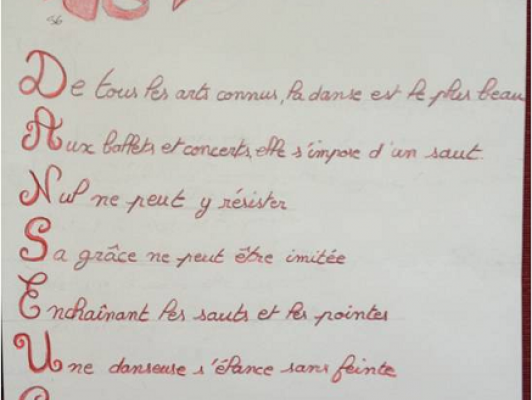 56
De tous les arts connus, la danse est le plus beau
Aux ballets et concerts, elle s'impose d'un saut.
Nul ne peut y résister
Sa grâce ne peut être imitée
Enchaînant les sauts et les pointes
Une danseuse s'élance sans feinte